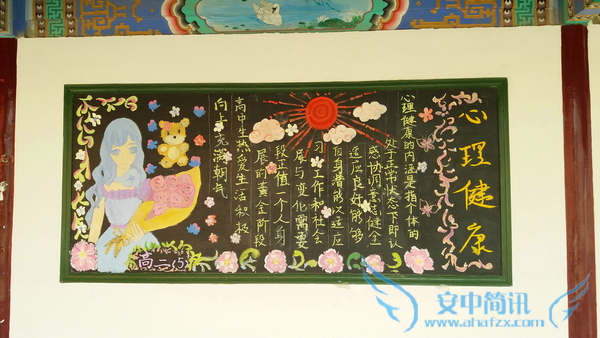 心理健康
心理健康的内涵是指个体的
处于正常状态下即认
感协调意志健全
适应良好能够
自身潜能以适应
习工作和社会
展与变化需要
段正值一个人身
展的黄金阶段
高中生热爱生活积极
向上充满朝气
高二(5)
安中简讯
www.ahafzx.com